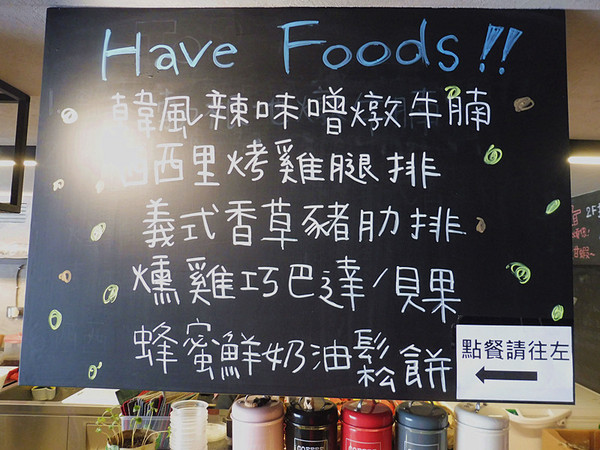 Have Foods!!
韓風辣味噌燉牛腩
西西里烤雞腿排
義式香草豬肋排
燻雞巧巴達/貝果
蜂蜜鮮奶油鬆餅
點餐請往左
2F
COFFEE